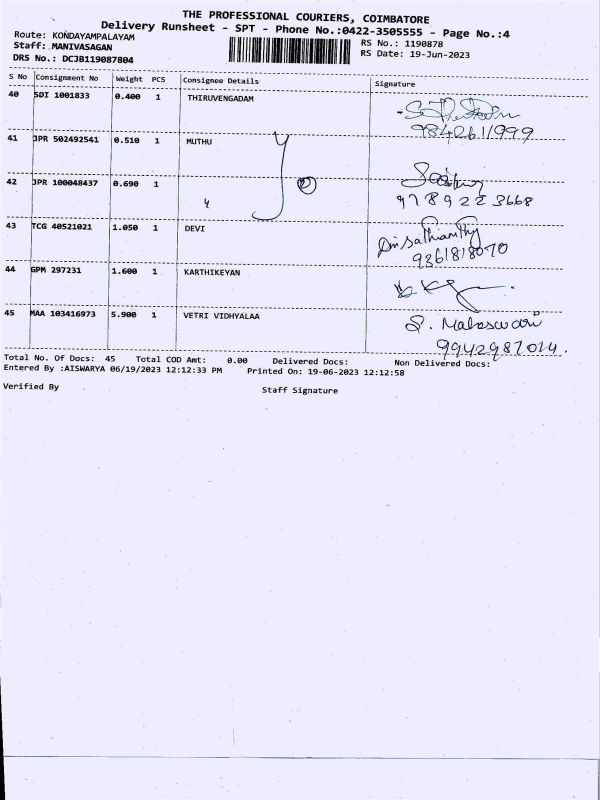 THE PROFESSIONAL COURIERS, COIMBATORE
Delivery Runsheet - SPT - Phone No.:0422-3505555 - Page No.:4
Route: KONDAYAMPALAYAM
Staff: MANIVASAGAN
DRS No.: DCJB119087804
RS No.: 1190878
RS Date: 19-Jun-2023
S No Consignment No Weight PCS Consignee Details Signature
40 SDI 1001833 0.400 1 THIRUVENGADAM
9842611999
41 JPR 502492541 0.510 1 MUTHU
42 JPR 100048437 0.690 1
9789223668
43 TCG 40521021 1.050 1 DEVI
9361818070
44 GPM 297231 1.600 1 KARTHIKEYAN
45 MAA 103416973 5.900 1 VETRI VIDHYALAA
9942987014.
Total No. Of Docs: 45 Total COD Amt: 0.00 Delivered Docs: Non Delivered Docs:
Entered By :AISWARYA 06/19/2023 12:12:33 PM Printed On: 19-06-2023 12:12:58
Verified By Staff Signature